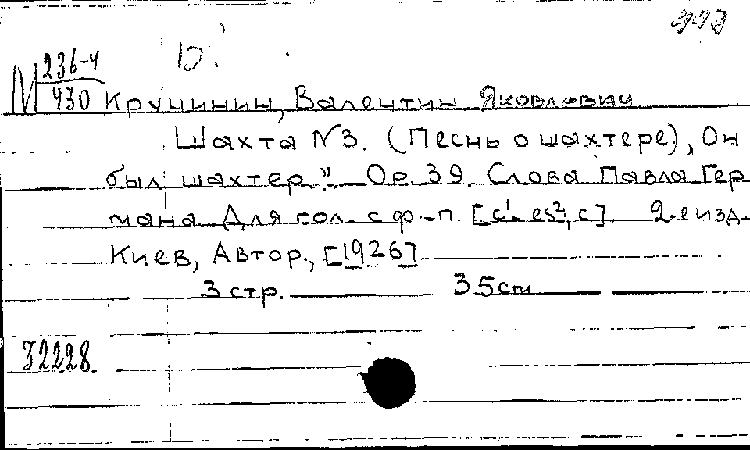 М 236-4
430
Кручинин, Валентин Яковлевич
Шахта №3. (Песнь о шахтере), Он
был шахтер..." Ор. 39. Слова Павла Гер
мана Для гол. с ф.-п. [c¹-es², c] 2-е изд.
Киев, Автор, [1926]
3 стр. 35 cm
32228.